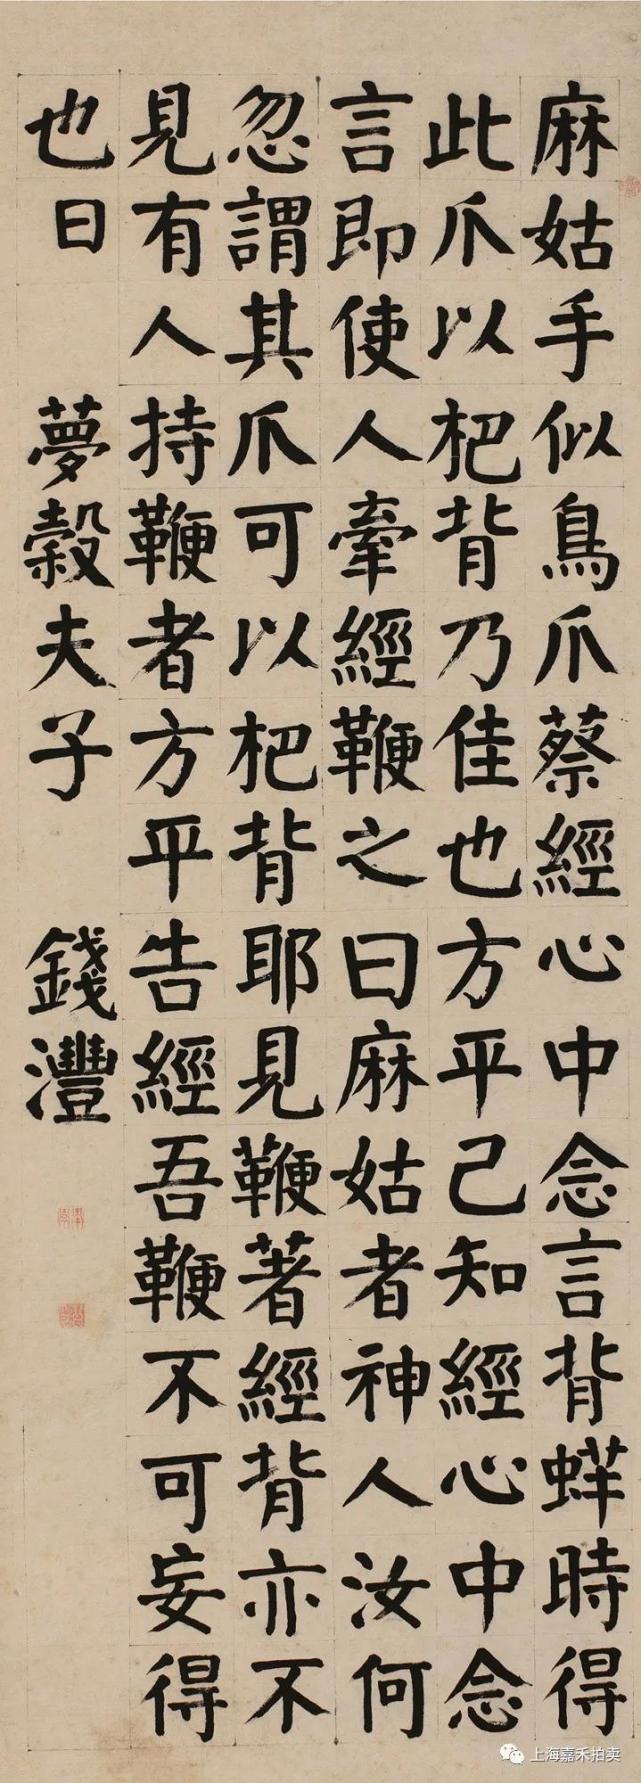 麻姑手似鳥爪蔡經心中念言背蛘時得
此爪以杷背乃佳也方平已知經心中念
言即使人牽經鞭之曰麻姑者神人汝何
忽謂其爪可以杷背耶見鞭著經背亦不
見有人持鞭者方平告經吾鞭不可妄得
也日 夢穀夫子 錢灃
上海嘉禾拍卖